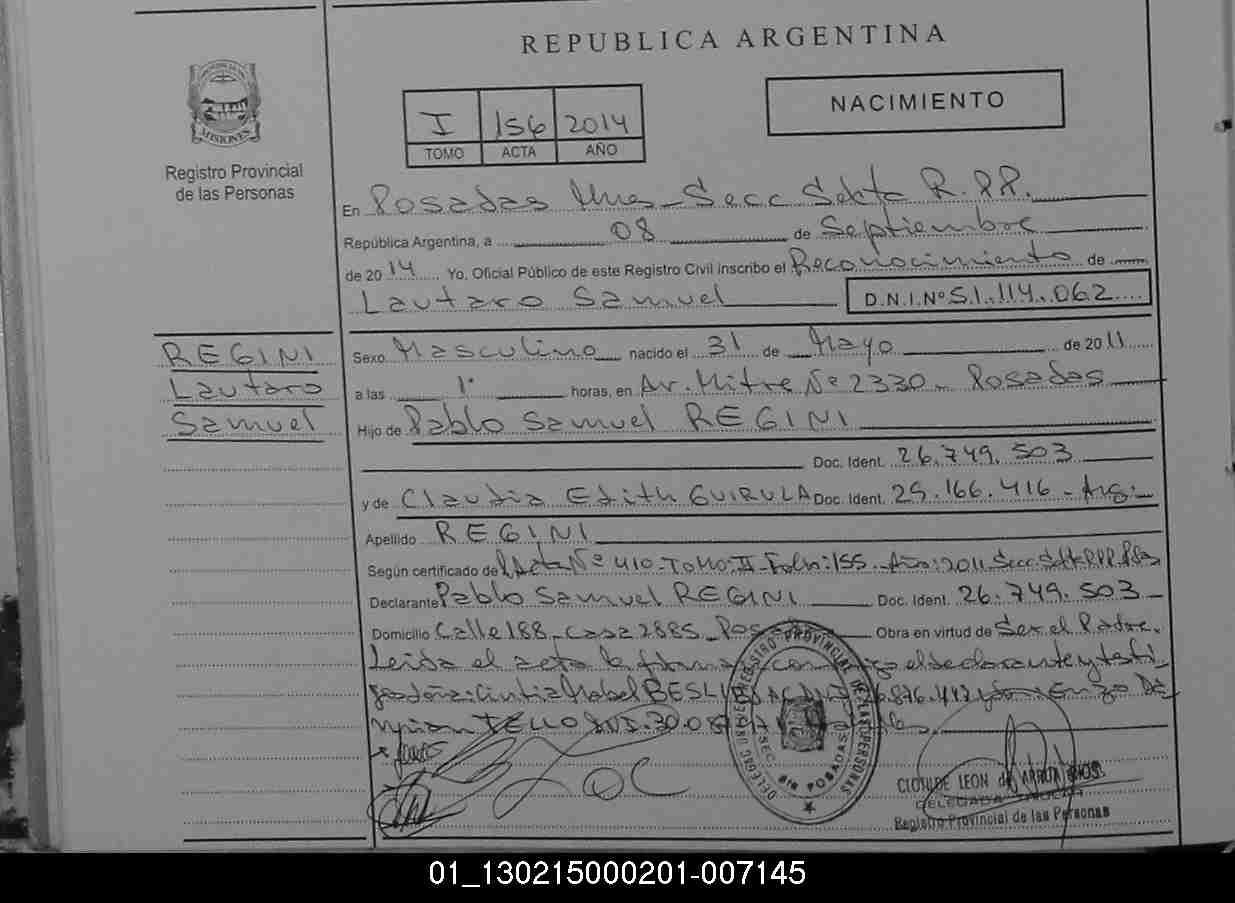 REPUBLICA ARGENTINA
MISIONES
Registro Provincial
de las Personas
I 156 2014
TOMO ACTA AÑO
NACIMIENTO
En Posadas Mnes - Secc Sexta R.P.P.
República Argentina, a 08 de Septiembre
de 2014 Yo. Oficial Público de este Registro Civil inscribo el Reconocimiento de
Lautaro Samuel D.N.I.Nº 51.114.062
REGINI
Lautaro
Samuel
Sexo Masculino nacido el 31 de Mayo de 2011
a las 1º horas, en Av. Mitre Nº 2330 - Posadas
Hijo de Pablo Samuel REGINI
Doc. Ident. 26.749.503
y de Claudia Edith GUIRULA Doc. Ident. 25.166.416 - Arg.
Apellido REGINI
Según certificado de Acta Nº 410 - Tomo II - Folio: 155 - Año: 2011 Secc Sexta RPP.
Declarante Pablo Samuel REGINI Doc. Ident. 26.749.503
Domicilio Calle 188 - Casa 2885 - Obra en virtud de Ser el Padre.
Leida el acta la firma el declarante y testi
gos doña: Cintia Mabel y don: Enzo
TELLO
DELEGAC USO REGISTRO PROVINCIAL DE LAS PERSONAS
SEC. 6ta POSADAS
CLOTILDE LEON de ARRUA
DELEGADA
Registro Provincial de las Personas
01_130215000201-007145